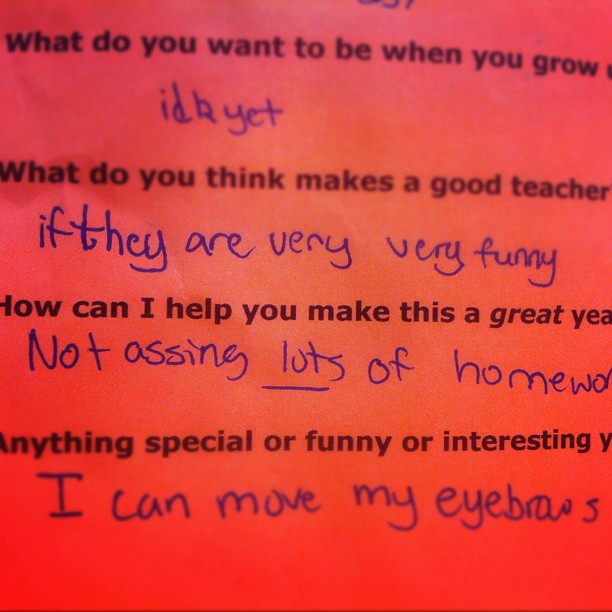 What do you want to be when you grow
idk yet
What do you think makes a good teacher
if they are very very funny
How can I help you make this a great yea
Not assing lots of homewor
Anything special or funny or interesting y
I can move my eyebraws